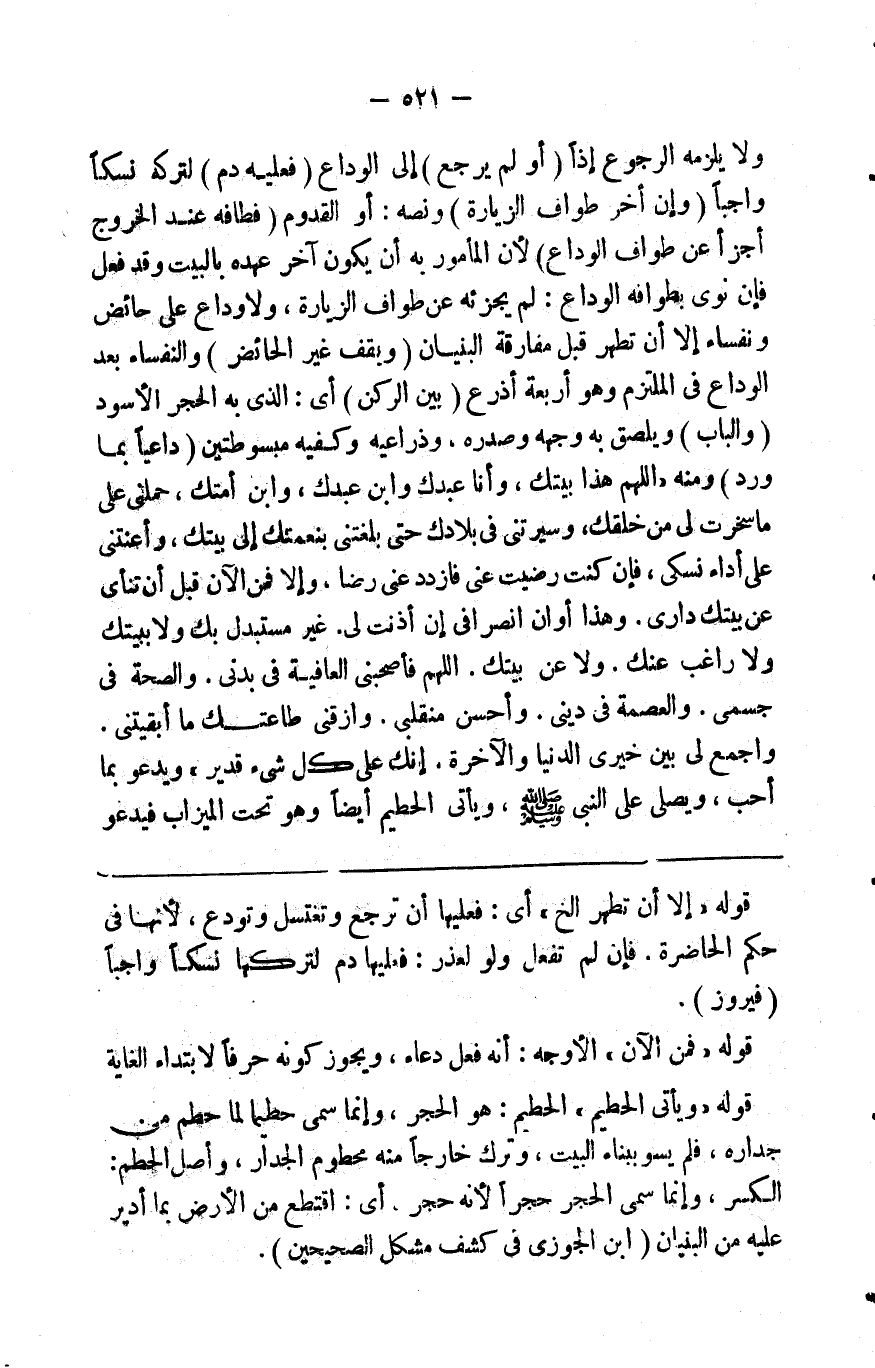 — ٥٢١ —
ولا يلزمه الرجوع إذاً ( أو لم يرجع ) إلى الوداع ( فعليه دم ) لتركه نسكاً
واجباً ( وإن أخر طواف الزيارة ) ونصه : أو القدوم ( فطافه عند الخروج
أجزأ عن طواف الوداع) لأن المأمور به أن يكون آخر عهده بالبيت وقد فعل
فإن نوى بطوافه الوداع : لم يجزئه عن طواف الزيارة ، ولا وداع على حائض
ونفساء إلا أن تطهر قبل مفارقة البنيان ( ويقف غير الحائض ) والنفساء بعد
الوداع فى الملتزم وهو أربعة أذرع ( بين الركن ) أى : الذى به الحجر الأسود
( والباب ) ويلصق به وجهه وصدره . وذراعيه وكفيه مبسوطتين ( داعياً بما
ورد ) ومنه « اللهم هذا بيتك ، وأنا عبدك وابن عبدك ، وابن أمتك ، حملتنى على
ما سخرت لى من خلقك، وسيرتنى فى بلادك حتى بلغتنى بنعمتك إلى بيتك ، وأعنتنى
على أداء نسكى ، فإن كنت رضيت عنى فازدد عنى رضا . وإلا فمن الآن قبل أن تنأى
عن بيتك دارى . وهذا أوان انصرافى إن أذنت لى. غير مستبدل بك ولا ببيتك
ولا راغب عنك . ولا عن بيتك . اللهم فأصحبنى العافية فى بدنى . والصحة فى
جسمى . والعصمة فى دينى . وأحسن منقلبى . وازقنى طاعتك ما أبقيتنى .
واجمع لى بين خيرى الدنيا والآخرة . إنك على كل شىء قدير » ويدعو بما
أحب ، ويصلى على النبى ﷺ ، ويأتى الحطيم أيضاً وهو تحت الميزاب فيدعو
قوله « إلا أن تطهر الخ » أى : فعليها أن ترجع وتغتسل وتودع ، لأنها فى
حكم الحاضرة . فإن لم تفعل ولو لعذر : فعليها دم لتركها نسكاً واجباً
( فيروز ) .
قوله « فمن الآن » الأوجه : أنه فعل دعاء ، ويجوز كونه حرفاً لابتداء الغاية
قوله « ويأتى الحطيم » الحطيم : هو الحجر ، وإنما سمى حطيما لما حطم من
جداره ، فلم يسو ببناء البيت ، وترك خارجاً منه محطوم الجدار ، وأصل الحطم :
الكسر ، وإنما سمى الحجر حجراً لأنه حجر . أى : اقتطع من الأرض بما أدير
عليه من البنيان ( ابن الجوزى فى كشف مشكل الصحيحين ) .